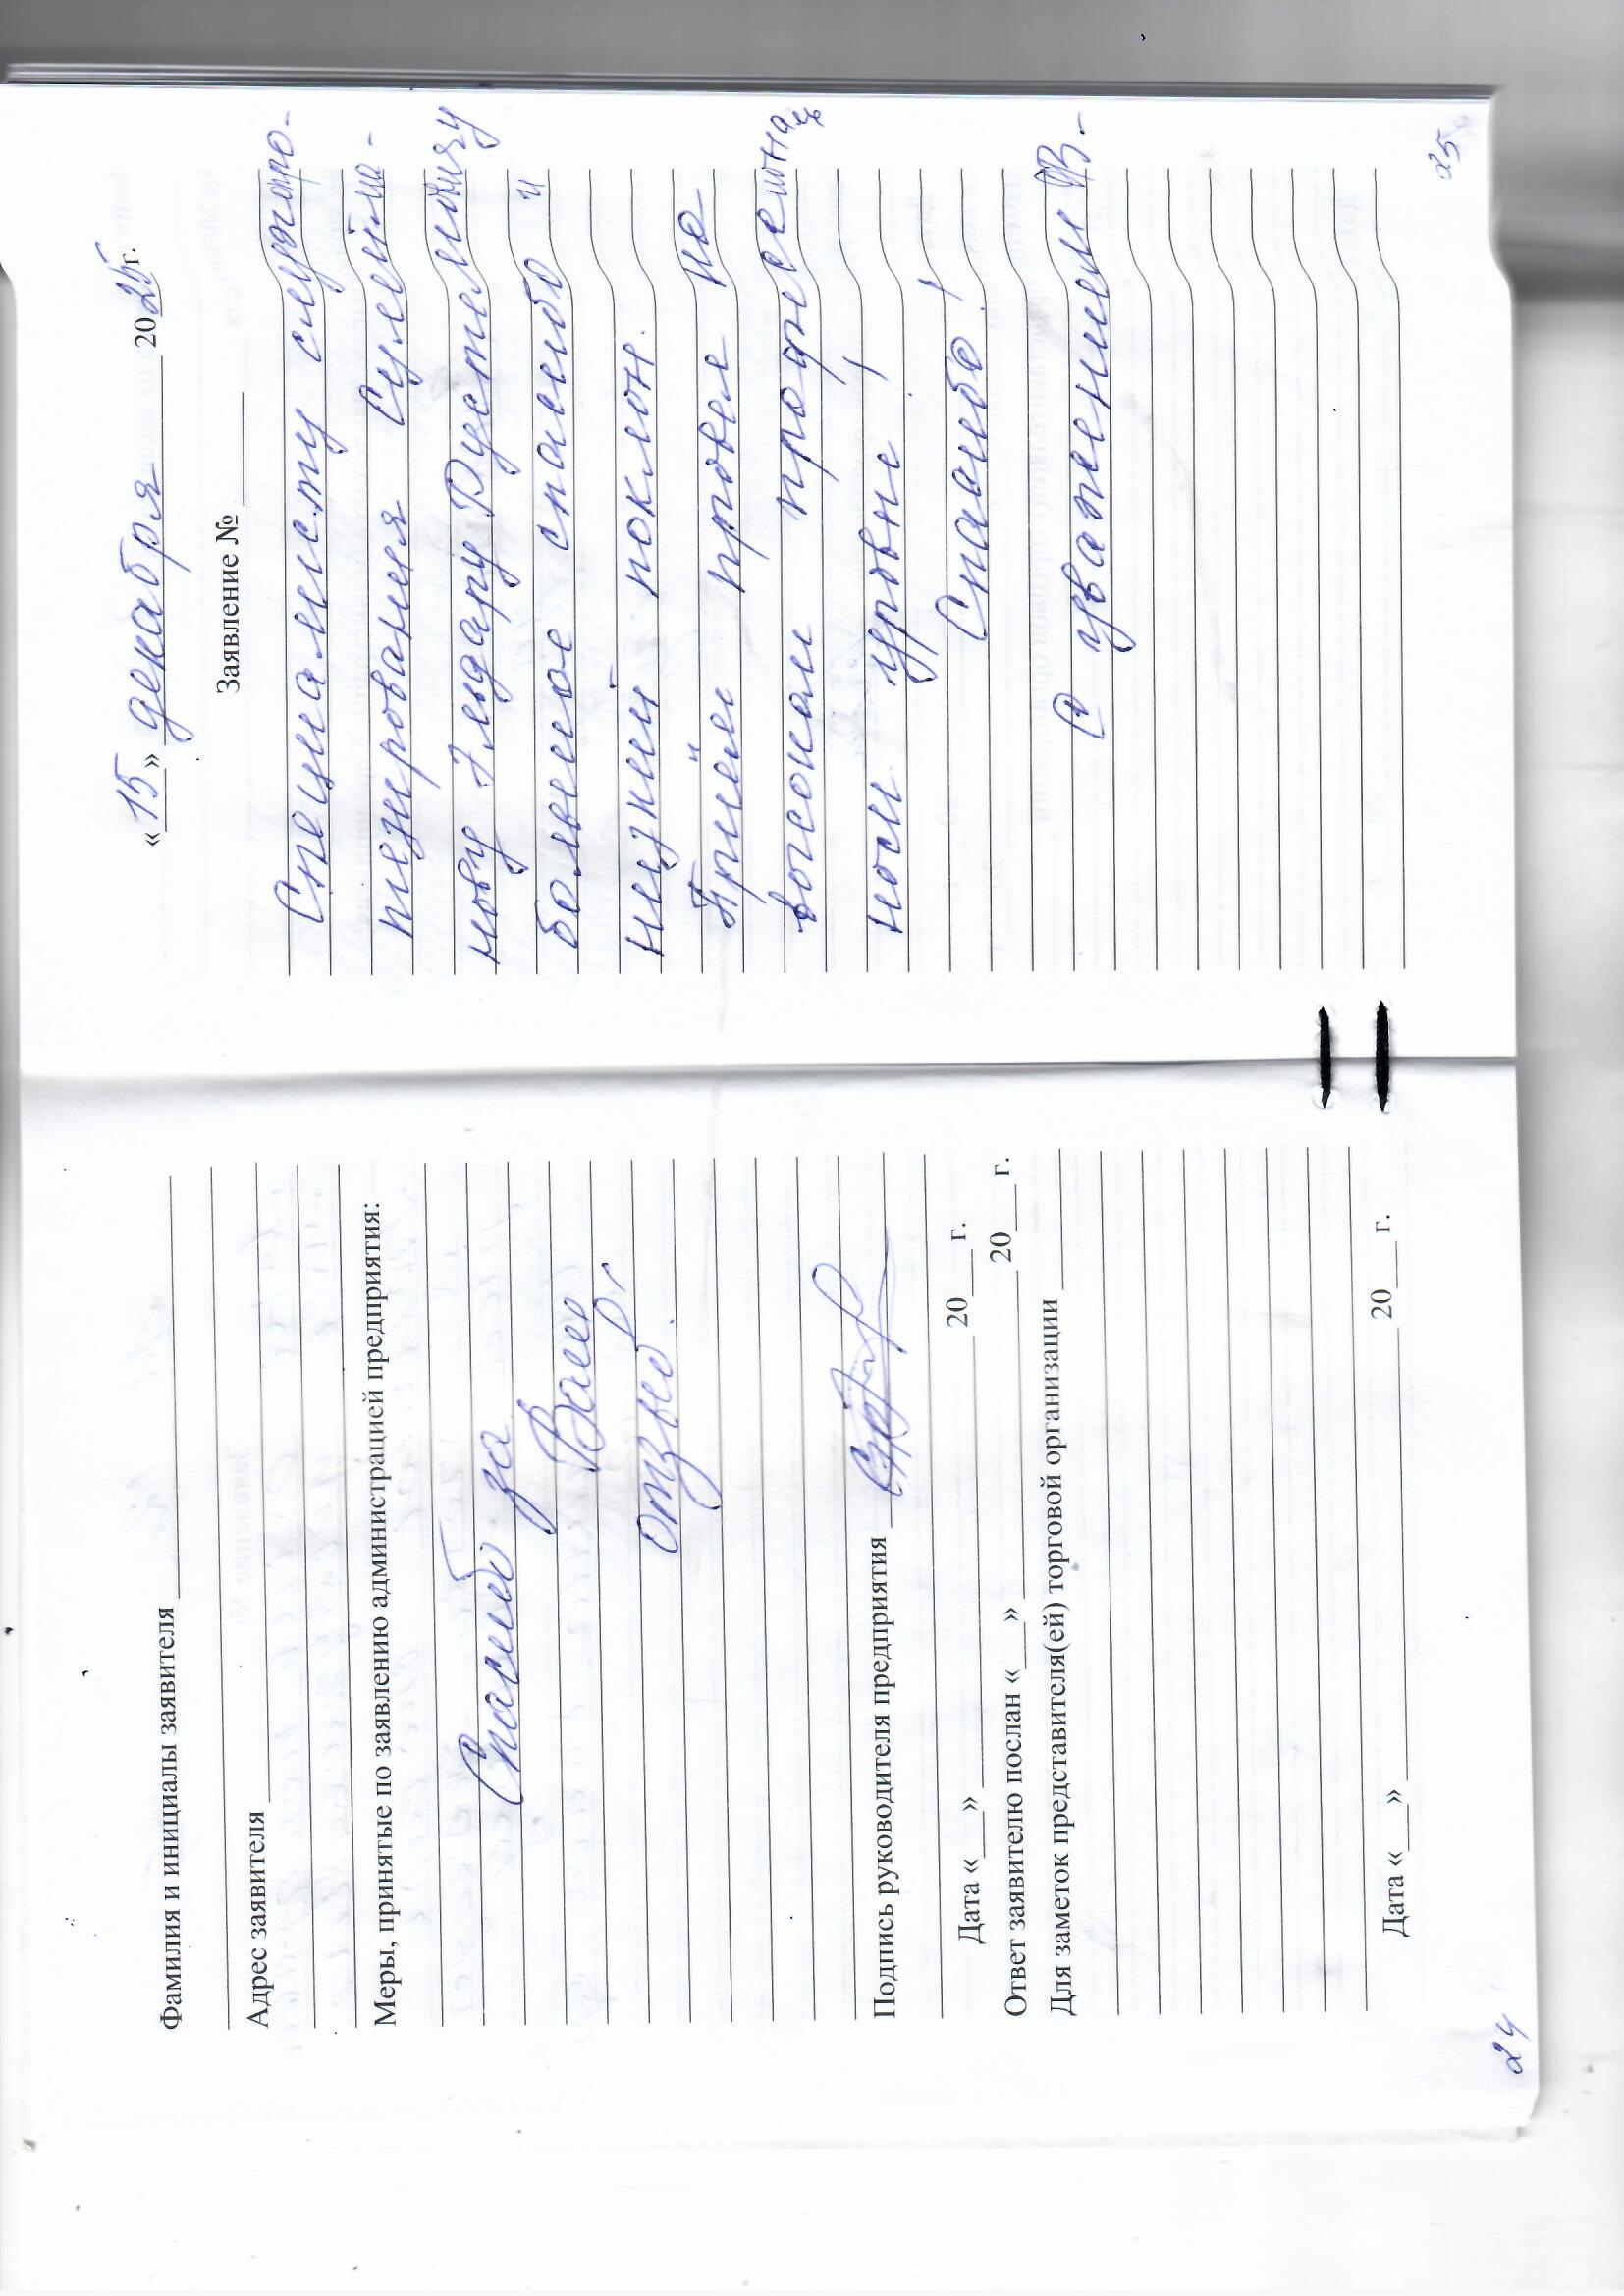 Фамилия и инициалы заявителя
Адрес заявителя
Меры, принятые по заявлению администрацией предприятия:
Спасибо за
Ваш
отзыв.
Подпись руководителя предприятия
Дата «___» ____________ 20___ г.
Ответ заявителю послан «___» ____________ 20___ г.
Для заметок представителя(ей) торговой организации
Дата «___» ____________ 20___ г.
24
«15» декабря 2025г.
Заявление № ______
Специалисту слухопро-
тезирования Сулейма-
нову Эльдару Рустемовичу
большое спасибо и
низкий поклон.
Приём провел на
высоком профессиональ
ном уровне!
Спасибо!
С уважением
25